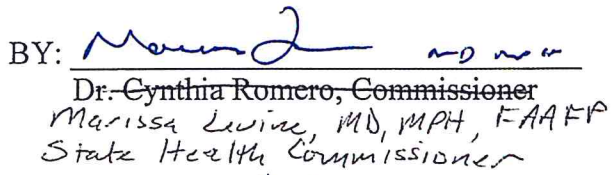 BY: MD MPH
Dr. Cynthia Romero, Commissioner
Marissa Levine, MD, MPH, FAAFP
State Health Commissioner